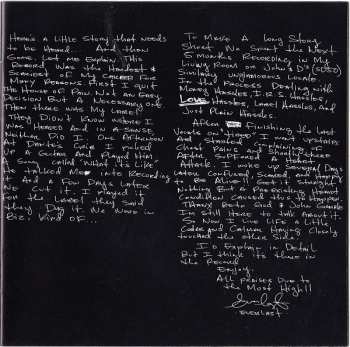 Here's a little story that needs
to be heard... And then
Gone. Let me explain. This
Record was the hardest &
Scariest of my career for
Many reasons. First I quit
The House of Pain. Not an easy
Decision but a necessary one.
Then there was my label.
They didn't know where I
Was headed and in a sense
Neither did I. One afternoon
At Dante's crib I picked
Up a guitar and played him
A song called "What it's like"
He talked me into recording
it and a few days later
We cut it. I played it
for the label they said
they dig it. We were in
Biz. Kind of...
To make a long story
Short we spent the next
5 months recording in my
Living room or John's D's (SD50)
Similarly ungamorous locale
In the process dealing with
Money hassles, I.R.S. hassles
Love hassles, label hassles, and
Just plain hassles.
After finishing the last
Vocals on I went upstairs
and started complaining of
Chest pains and shortly there
After suffered a heart
Attack. I woke up several days
Later confused, scared, and happy
to be alive. To get it straight
Nothing but a pre-existing heart
Condition caused this to happen.
Thank both God & John Gamble
I'm still here to talk about it.
So now I live life a little
Calmer and calmer having closely
touched the other side.
I'd explain in detail
But I think it's there in
the record
Enjoy.
All praises due to
the Most High!!
Everlast